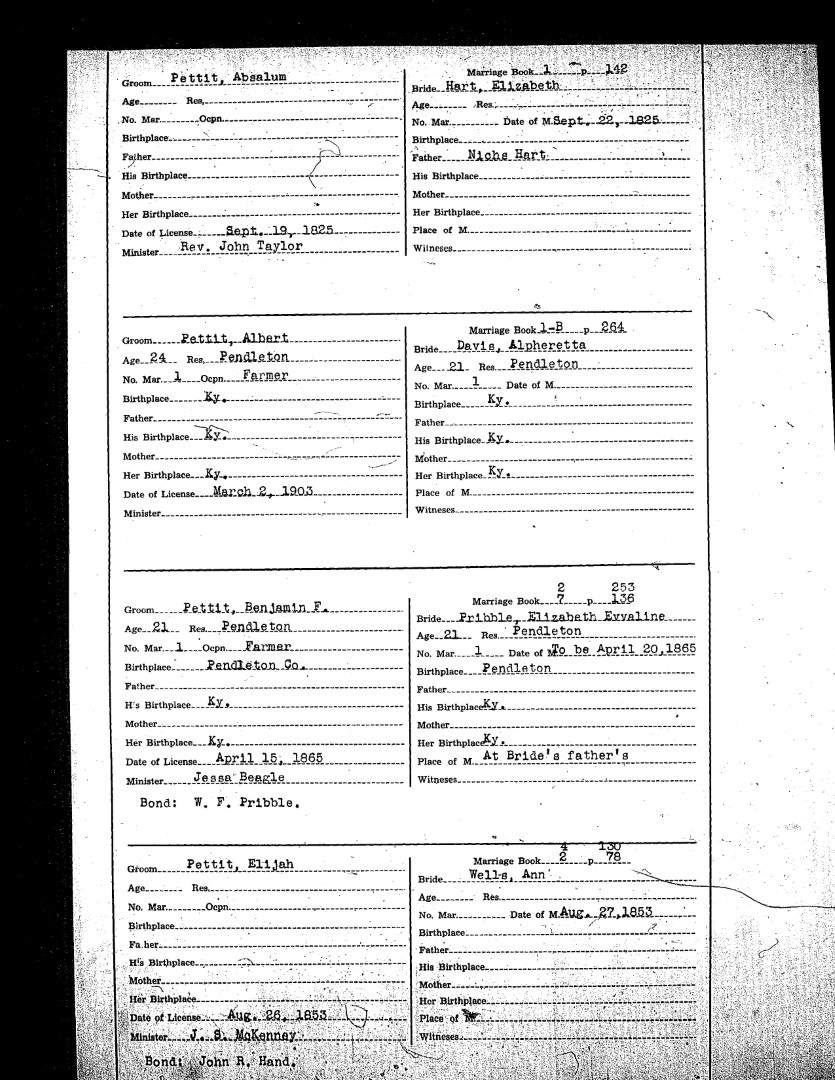 Groom Pettit, Absalum
Age Res.
No. Mar. Ocpn.
Birthplace
Father
His Birthplace
Mother
Her Birthplace
Date of License Sept. 19, 1825
Minister Rev. John Taylor
Marriage Book 1 p. 142
Bride Hart, Elizabeth
Age Res.
No. Mar. Date of M. Sept. 22, 1825
Birthplace
Father Niche Hart
His Birthplace
Mother
Her Birthplace
Place of M.
Witneses
Groom Pettit, Albert
Age 24 Res. Pendleton
No. Mar. 1 Ocpn. Farmer
Birthplace Ky.
Father
His Birthplace Ky.
Mother
Her Birthplace Ky.
Date of License March 2, 1903
Minister
Marriage Book 1-B p. 264
Bride Davis, Alpheretta
Age 21 Res. Pendleton
No. Mar. 1 Date of M.
Birthplace Ky.
Father
His Birthplace Ky.
Mother
Her Birthplace Ky.
Place of M.
Witneses
Groom Pettit, Benjamin F.
Age 21 Res. Pendleton
No. Mar. 1 Ocpn. Farmer
Birthplace Pendleton Co.
Father
H's Birthplace Ky.
Mother
Her Birthplace Ky.
Date of License April 15, 1865
Minister Jessa Beagle
Bond: W. F. Pribble.
2 253
Marriage Book 7 p. 136
Bride Pribble, Elizabeth Evvaline
Age 21 Res. Pendleton
No. Mar. 1 Date of M. To be April 20,1865
Birthplace Pendleton
Father
His Birthplace Ky.
Mother
Her Birthplace Ky.
Place of M. At Bride's father's
Witneses
Groom Pettit, Elijah
Age Res.
No. Mar. Ocpn.
Birthplace
Fa.her
H's Birthplace
Mother
Her Birthplace
Date of License Aug. 26, 1853
Minister J. S. McKenney
Bond: John R. Hand.
4 130
Marriage Book 2 p. 78
Bride Wells, Ann
Age Res.
No. Mar. Date of M. Aug. 27,1853
Birthplace
Father
His Birthplace
Mother
Her Birthplace
Place of M.
Witneses